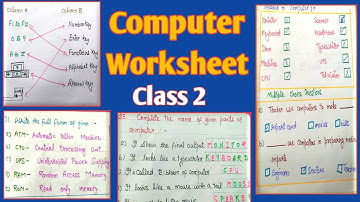 Column A Column B
F1 to F12 Number key
0 to 9 Enter key
A to Z Function key
Alphabet key
Arrow key
Computer
Worksheet
Class 2
Printer Scanner
Keyboard
Mouse
Machine UPS
CPU Television
Multiple Choice Questions
a) Teacher use computers to make
Report card movie bills
b) use computers in preparing medical
reports
Engineers Doctors Teachers
Write the full form of given
a) ATM- Automatic Teller Machine
b) CPU- Central Processing Unit
c) UPS- Uninterrupted Power Supply
d) RAM- Random Access Memory
e) ROM- Read only memory
Q3 Complete the name of given parts of
computer :-
a) It show the final output MONITOR
b) It looks like a typewriter KEYBOARD
c) It called the brain of computer CPU
d) It looks like a mouse with a tail MOUSE
SPEAKE